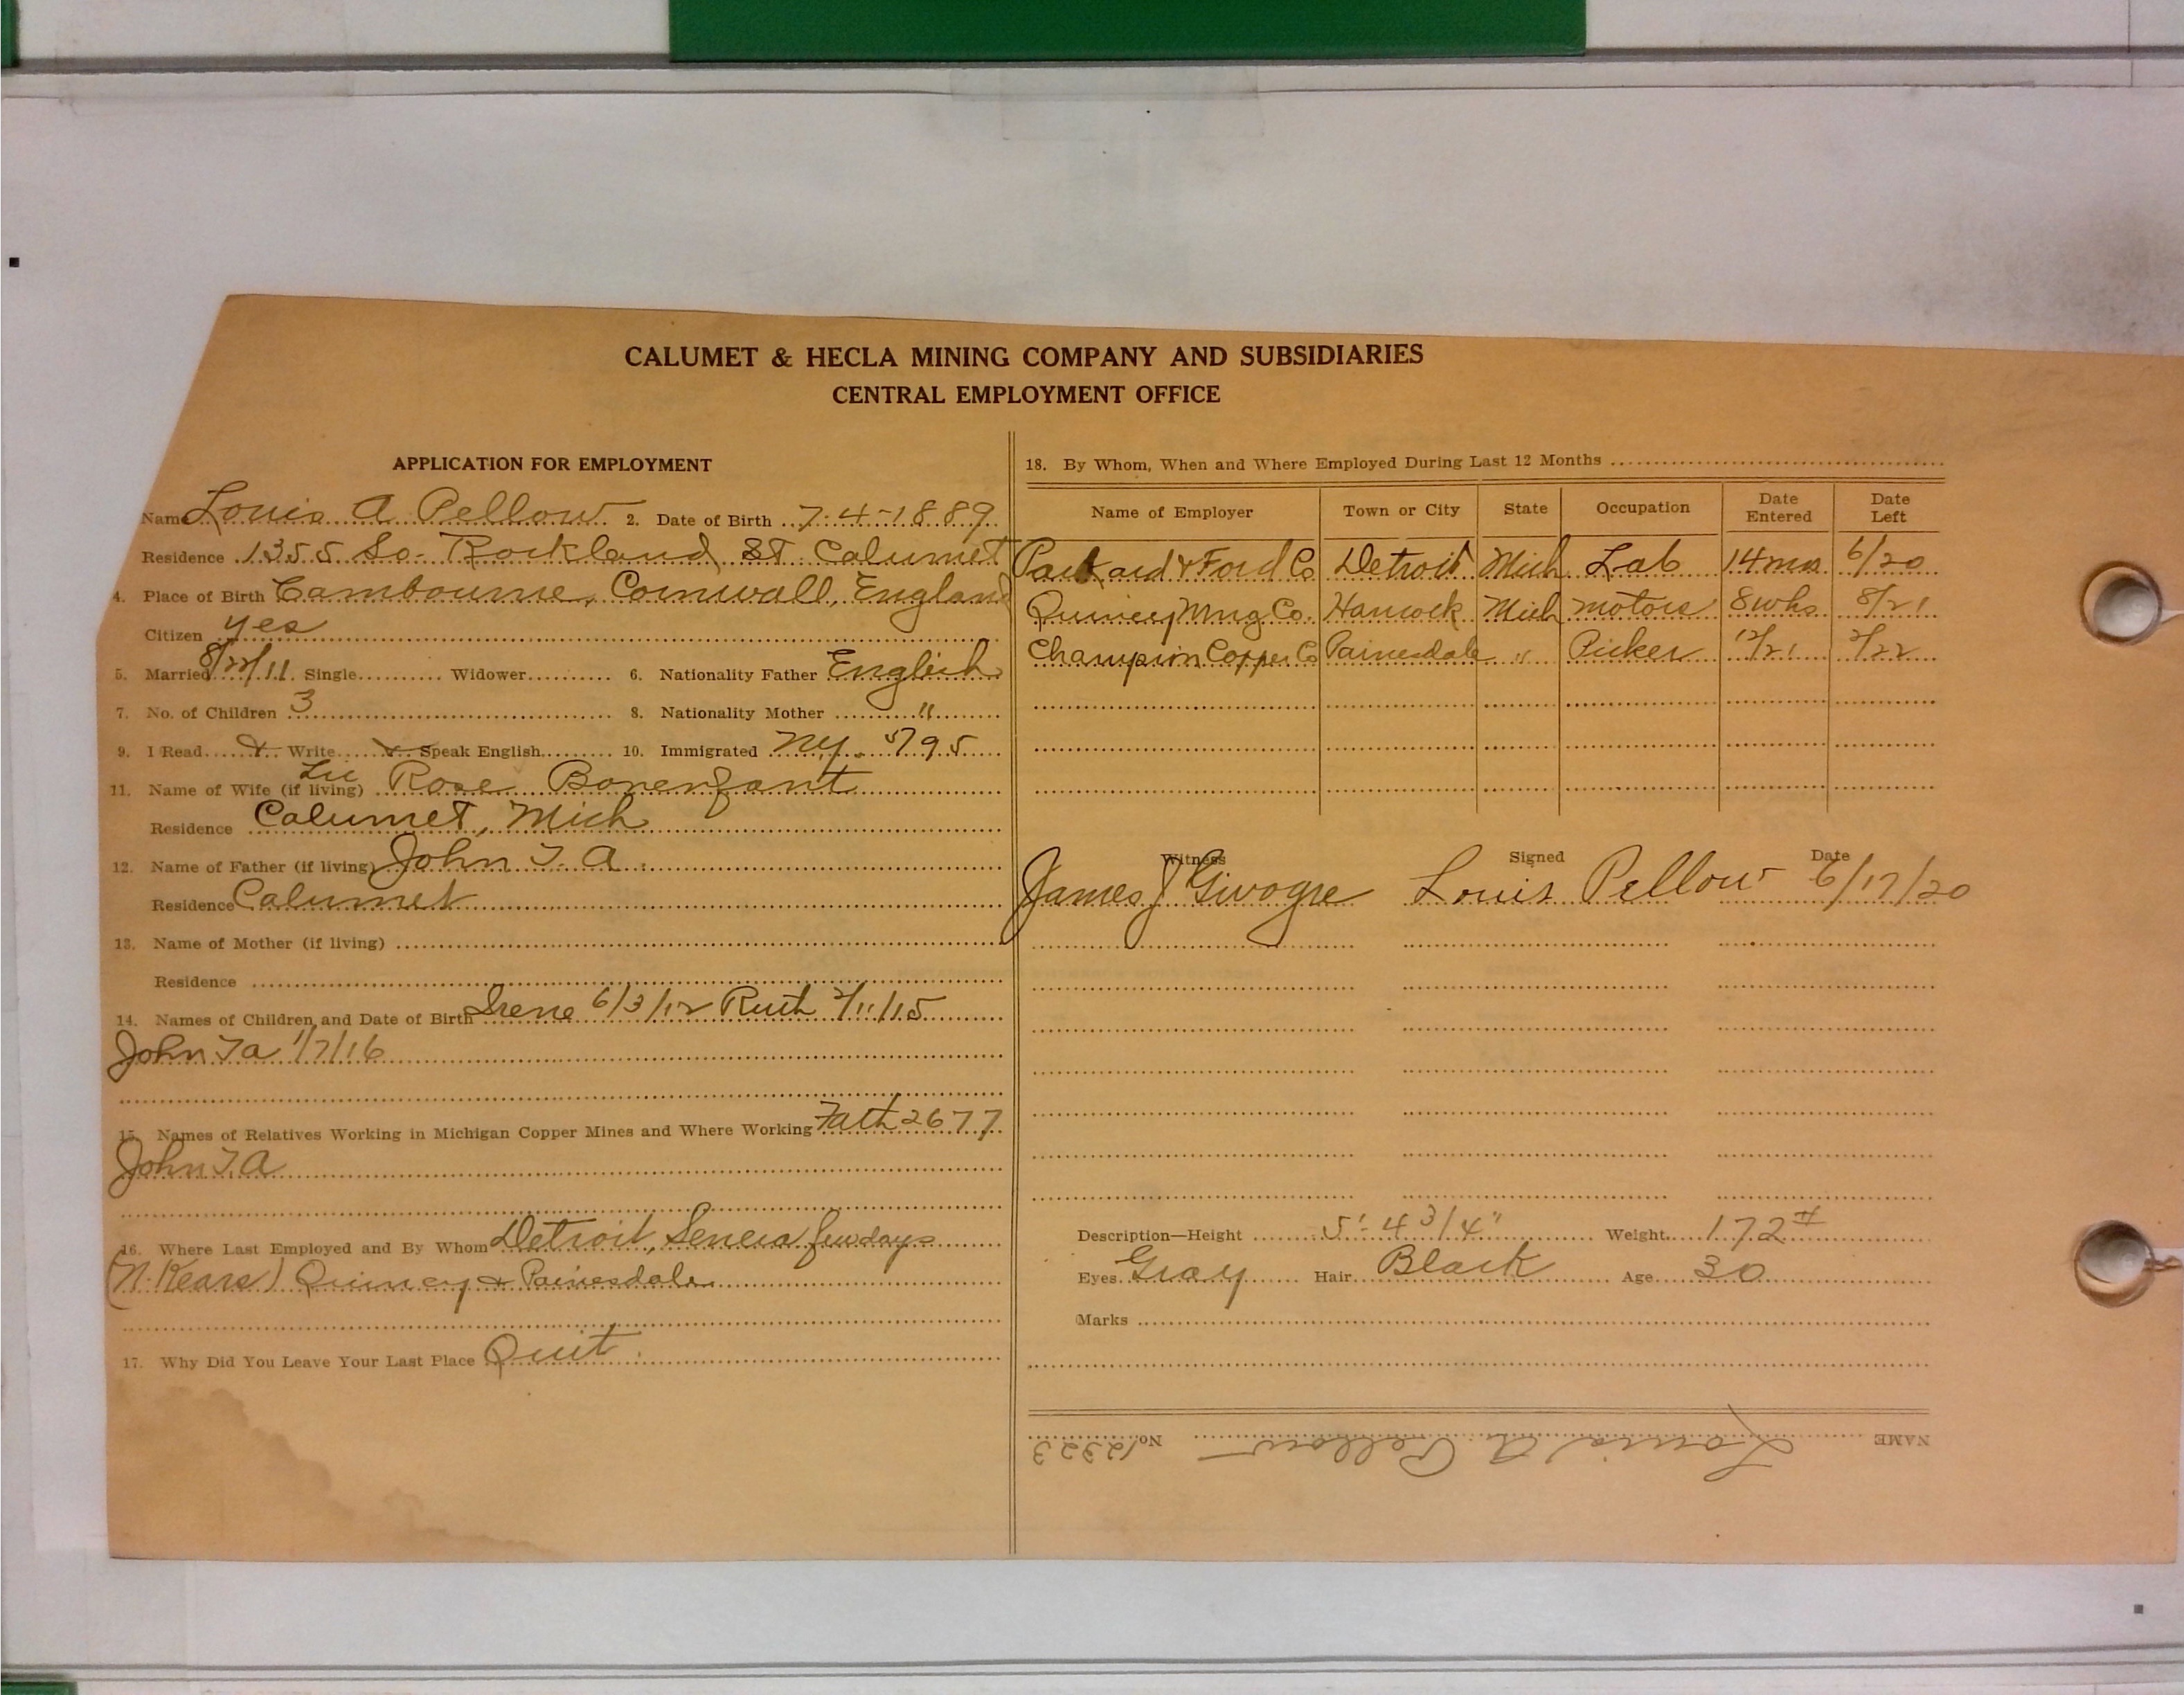 CALUMET & HECLA MINING COMPANY AND SUBSIDIARIES
CENTRAL EMPLOYMENT OFFICE
APPLICATION FOR EMPLOYMENT
Name Louis A Pellow 2. Date of Birth 7-4-1889
Residence 1355 So. Rockland St. Calumet
4. Place of Birth Cambourne, Cornwall, England
Citizen yes
5. Married 8/22/11 Single Widower 6. Nationality Father English
7. No. of Children 3 8. Nationality Mother "
9. I Read Write Speak English 10. Immigrated NY 5/95
11. Name of Wife (if living) Rose Bonenfant
Residence Calumet, Mich
12. Name of Father (if living) John T. A.
Residence Calumet
13. Name of Mother (if living)
Residence
14. Names of Children and Date of Birth Irene 6/3/12 Ruth 2/11/15
John TA 1/7/16
15. Names of Relatives Working in Michigan Copper Mines and Where Working Fath 2677
John T. A
16. Where Last Employed and By Whom Detroit, Seneca few days
(N. Kears) Quincy & Painesdale
17. Why Did You Leave Your Last Place Quit
18. By Whom, When and Where Employed During Last 12 Months
Name of Employer Town or City State Occupation Date Entered Date Left
Packard & Ford Co Detroit Mich Lab 14 mos. 6/20
Quincy Mng Co. Hancock Mich motors 8 wks. 8/21
Champion Copper Co Painesdale " Picker 12/21 2/22
Witness Signed Date
James J Louis Pellow 6/17/20
Description—Height 5'-4 3/4" Weight 172#
Eyes Gray Hair Black Age 30
Marks
NAME Louis A. Pellow No. 12323